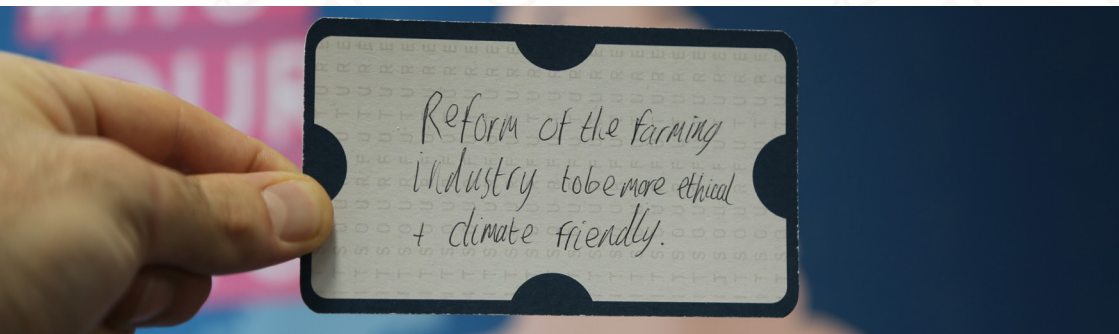 OUR
Reform of the farming
industry to be more ethical
+ climate friendly.